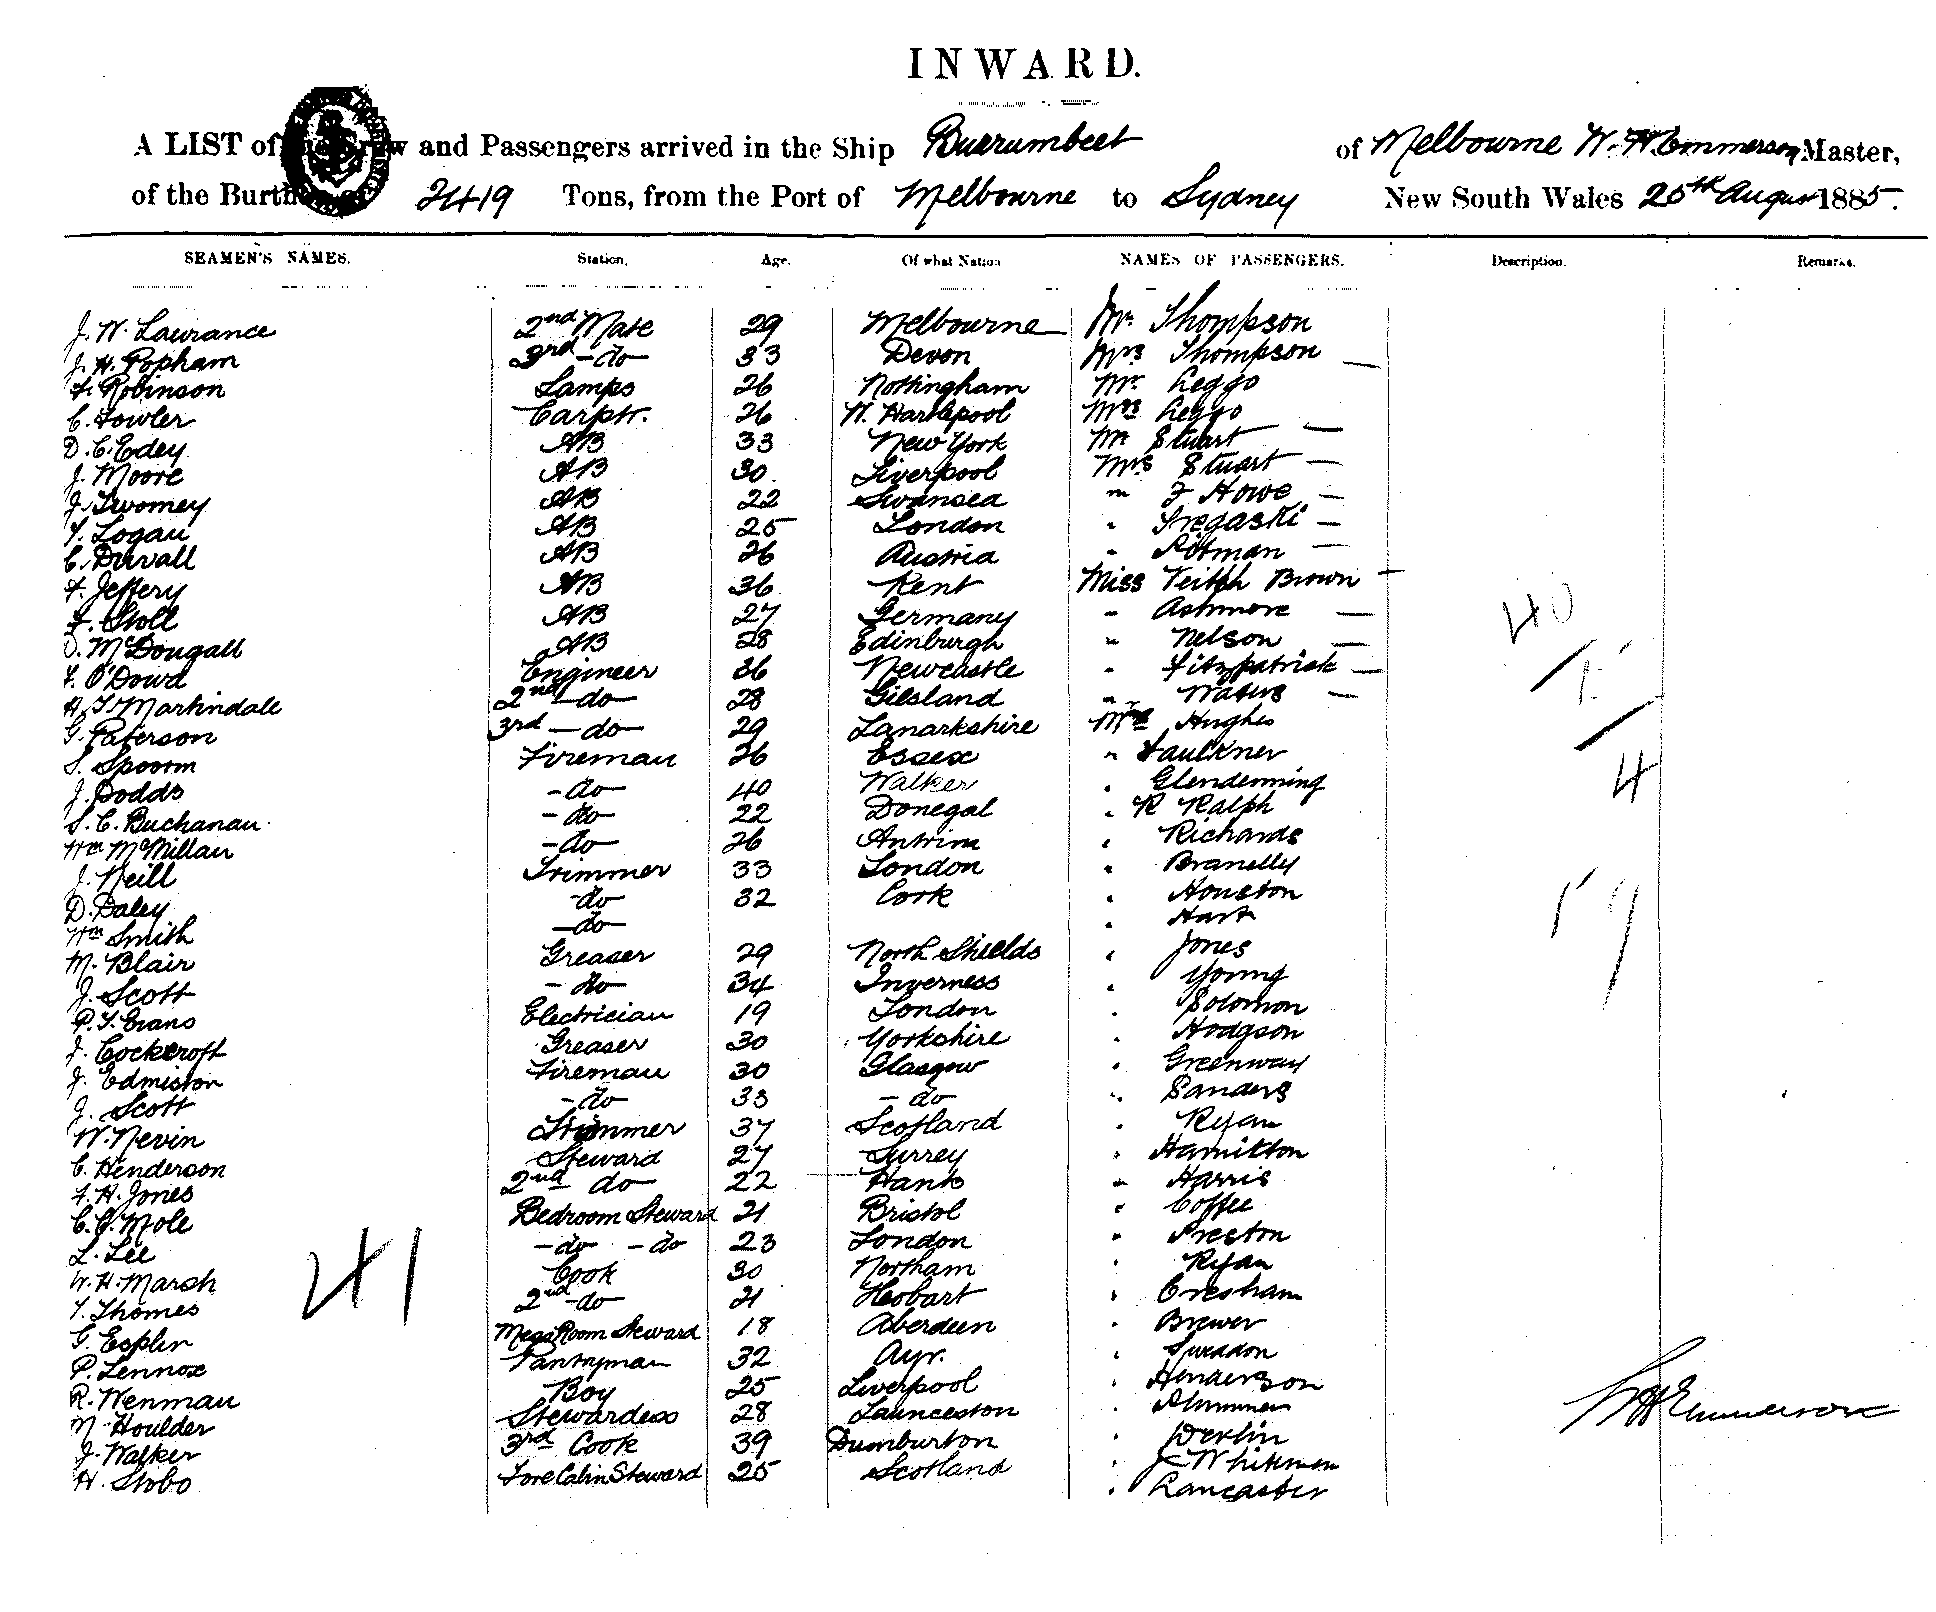 INWARD.
A LIST of the Crew and Passengers arrived in the Ship Burrumbeet of Melbourne W. H. Emmerson Master,
of the Burthen of 2419 Tons, from the Port of Melbourne to Sydney New South Wales 25th August 1885.
SEAMEN'S NAMES. Station. Age. Of what Nation NAMES OF PASSENGERS. Description. Remarks.
J. W. Lawrance 2nd Mate 29 Melbourne Mr. Thompson
J. H. Popham 3rd - do 33 Devon Mrs Thompson —
F. Robinson Lamps 26 Nottingham Mr. Leggo
C. Fowler Carptr. 26 W. Hartlepool Mrs Leggo
D. C. Edey AB 33 New York Mr Stuart —
J. Moore AB 30 Liverpool Mrs Stuart —
J. Twomey AB 22 Swansea " F Howe —
T. Logan AB 25 London " Tregaski —
C. Duvall AB 26 Austria " Pitman —
F. Jeffery AB 36 Kent Miss Veitch Brown —
F. Stoll AB 27 Germany " Ashmore —
D. McDougall AB 28 Edinburgh " Nelson —
T. O'Dowd Engineer 36 Newcastle " Fitzpatrick —
H. T. Martindale 2nd - do 28 Gilsland " Waters —
G. Paterson 3rd - do 29 Lanarkshire Mrs Hughes
S. Spoorm Fireman 26 Essex " Faulkner
J. Dodds - do 40 Walker " Glendenning
S. C. Buchanan - do 22 Donegal " R Ralph
Wm McMillan - do 26 Antrim " Richards
J. Neill Trimmer 33 London " Branelly
D. Daley - do 32 Cork " Houston
Wm Smith - do " Hart
M. Blair Greaser 29 North Shields " Jones
J. Scott - do 34 Inverness " Young
P. T. Evans Electrician 19 London " Solomon
J. Cockcroft Greaser 30 Yorkshire " Hodgson
J. Edmiston Fireman 30 Glasgow " Greenway
J. Scott - do 33 - do " Sanders
W. Nevin Trimmer 37 Scotland " Ryan
C. Henderson Steward 27 Surrey " Hamilton
F. H. Jones 2nd do 22 Hants " Harris
C. C. Mole Bedroom Steward 21 Bristol " Coffee
L. Lee - do - do 23 London " Preston
W. H. Marsh Cook 30 Northam " Ryan
T. Thomes 2nd - do 21 Hobart " Cresham
G. Esplin Mess Room Steward 18 Aberdeen " Brewer
P. Lennox Pantryman 32 Ayr. "
R. Wenman Boy 25 Liverpool " Henderson
N. Houlder Stewardess 28 Launceston "
J. Walker 3rd Cook 39 Dumburton " Devlin
H. Stobo Fore Cabin Steward 25 Scotland " J C Whitman
" Lancaster
40
4
41
W H Emmerson